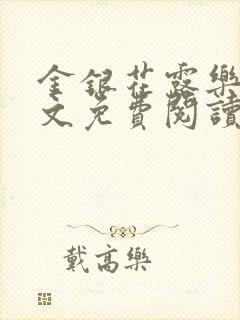 金銀花露樂
文免費閱讀
戴高樂